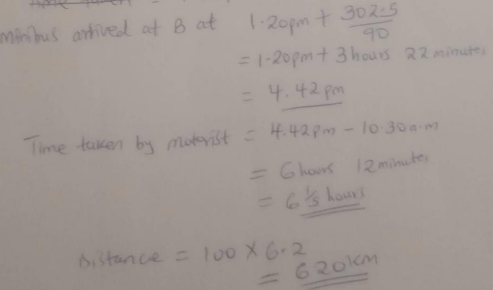 minibus arrived at B at 1.20pm + 302.5/90
= 1.20pm + 3 hours 22 minutes
= 4.42pm
Time taken by motorist = 4.42pm - 10.30a.m
= 6 hours 12 minutes
= 6 1/5 hours
Distance = 100 X 6.2
= 620km